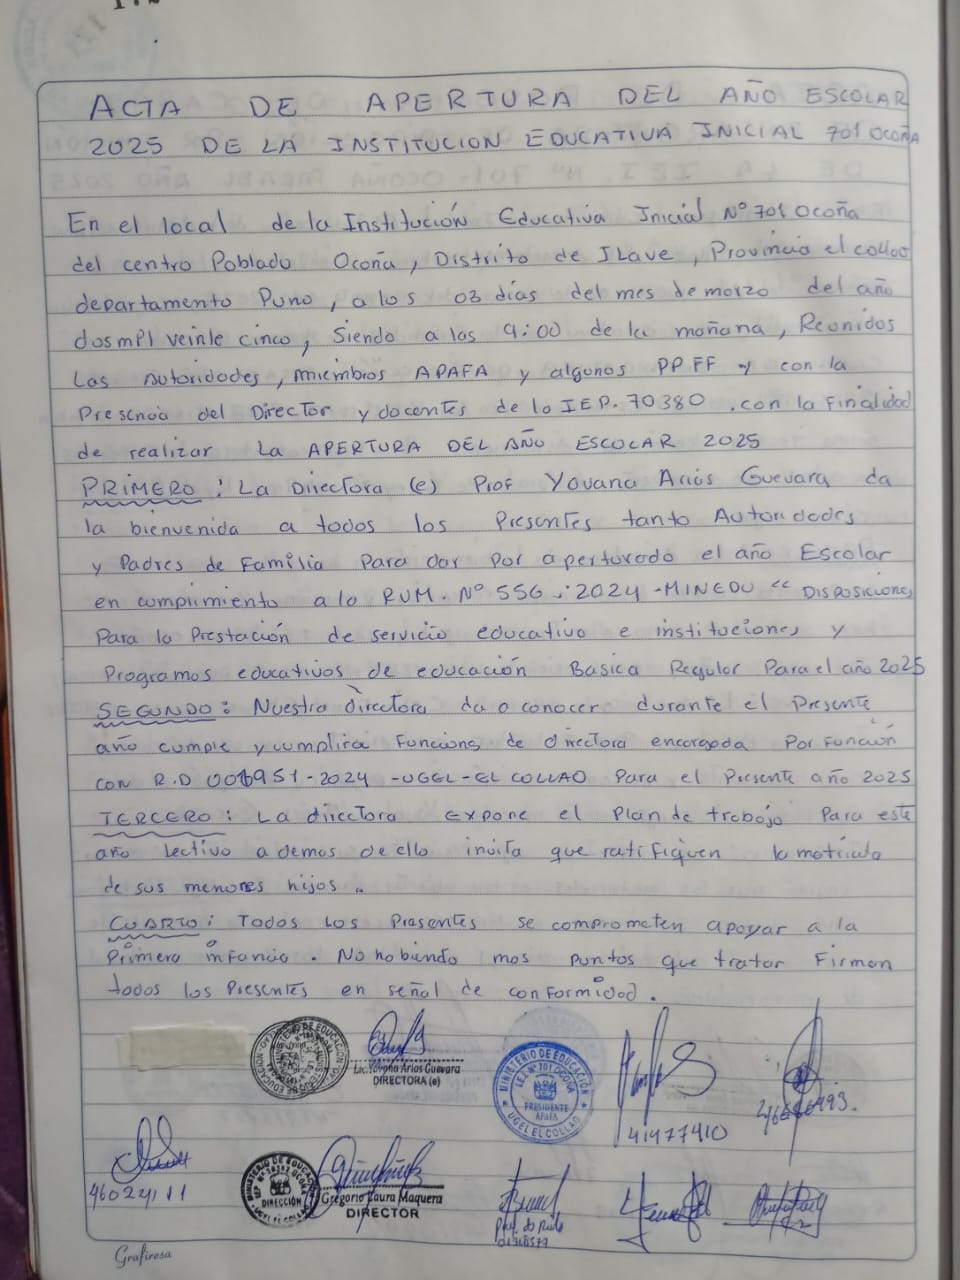 ACTA DE APERTURA DEL AÑO ESCOLAR
2025 DE LA INSTITUCION EDUCATIVA INICIAL 701 OCOÑA
En el local de la Institución Educativa Inicial N° 701 Ocoña
del centro Poblado Ocoña, Distrito de ILave, Provincia el collao
departamento Puno, a los 03 días del mes de marzo del año
dosmil veinte cinco, Siendo a las 9:00 de la mañana, Reunidos
Las Autoridades, miembros APAFA y algunos PPFF y con la
Presencia del Director y docentes de la IEP. 70380. con la Finalidad
de realizar La APERTURA DEL AÑO ESCOLAR 2025
PRIMERO: La Directora (e) Prof Yovana Arias Guevara da
la bienvenida a todos los Presentes tanto Autoridades
y Padres de Familia Para dar Por aperturado el año Escolar
en cumplimiento a la RVM. N° 556 - 2024 -MINEDU "DISPOSICIONES
Para la Prestación de servicio educativo e instituciones y
Programas educativos de educación Basica Regular Para el año 2025
SEGUNDO: Nuestra directora da a conocer durante el Presente
año cumple y cumplira Funciones de directora encargada Por Función
con R.D 001951-2024 -UGEL-EL COLLAO Para el Presente año 2025
TERCERO: La directora Expone el Plan de trabajo Para este
año lectivo ademas de ello invita que ratifiquen la matricula
de sus menores hijos.
CUARTO: Todos Los Presentes se comprometen apoyar a la
Primera infancia. No habiendo mas puntos que tratar Firman
todos los Presentes en señal de conformidad.
Lic. Yovana Arias Guevara
DIRECTORA (e)
MINISTERIO DE EDUCACIÓN
I.E.I. N° 701 OCOÑA
PRESIDENTE
APAFA
UGEL EL COLLAO
41477410
46024111
MINISTERIO DE EDUCACIÓN
DIRECCIÓN
UGEL EL COLLAO
Gregorio Laura Maquera
DIRECTOR
Grafiresa